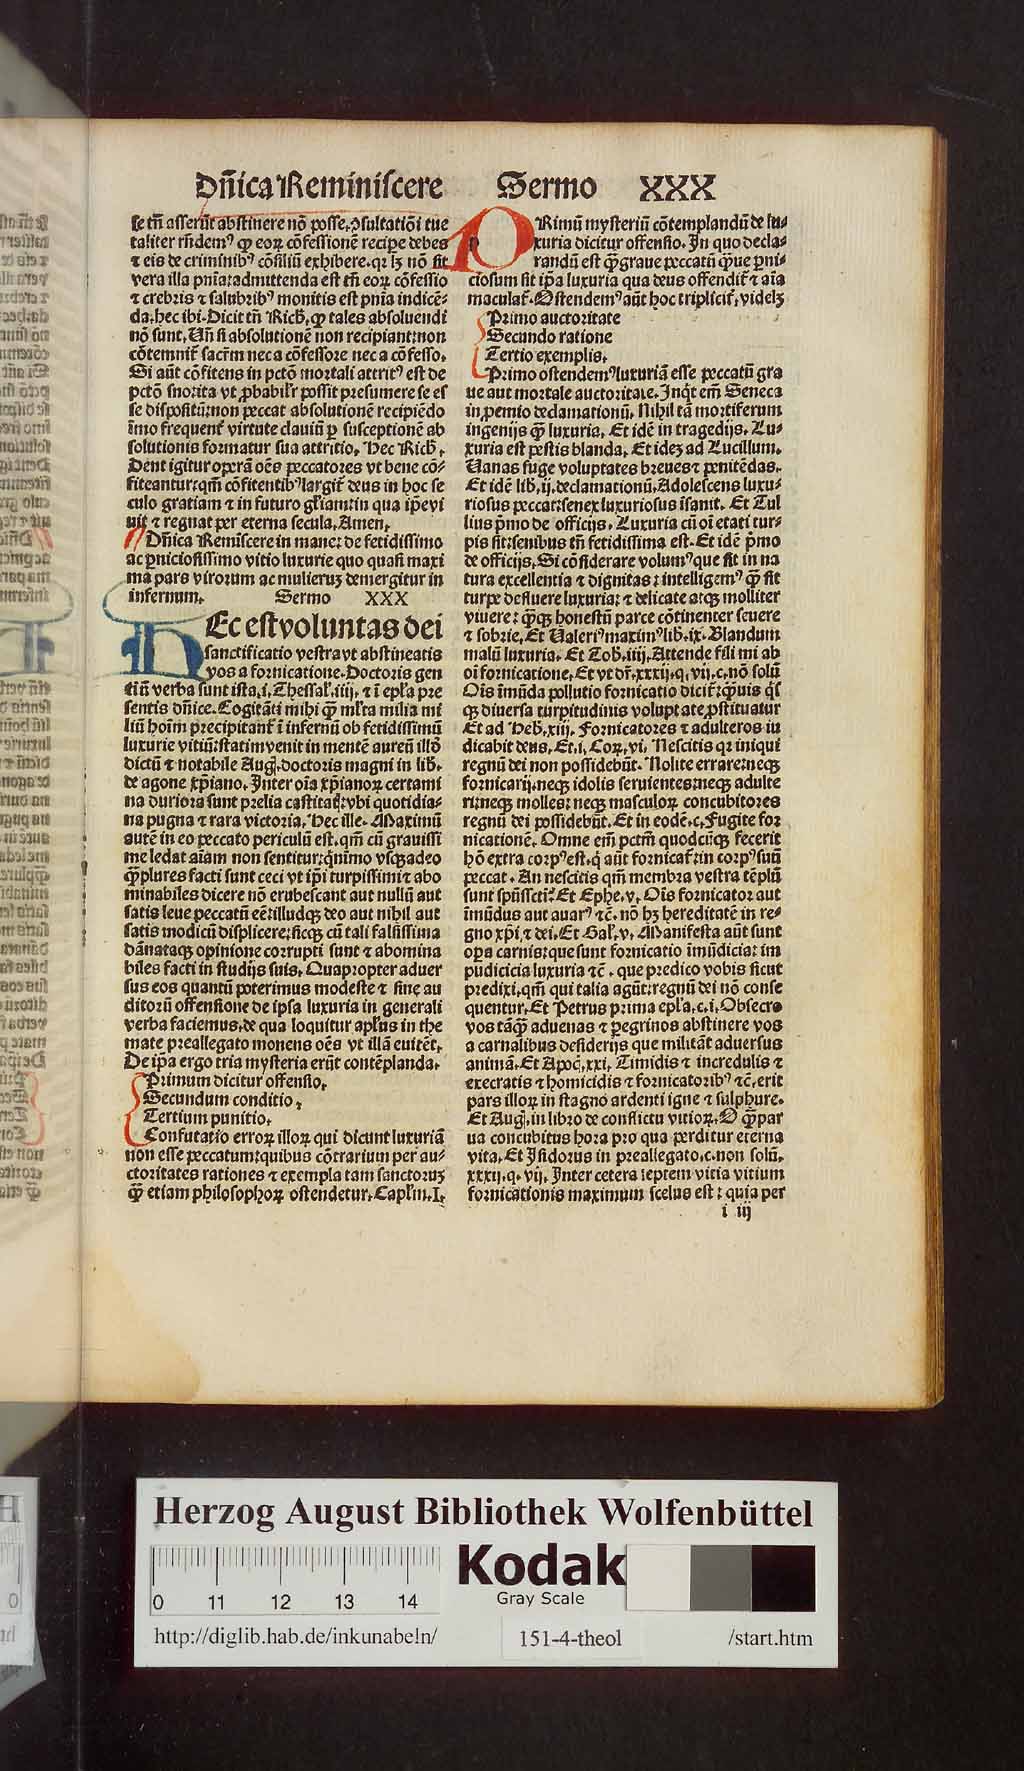 Dñica Reminiscere Sermo XXX
se tñ asserūt abstinere nō posse, ꝯsultatiōi tue
taliter rñdemꝰ ꝙ eoꝝ cōfessionē recipe debes
⁊ eis de criminibꝰ cōsiliū exhibere. qꝛ lꝫ nō sit
vera illa pnīa: admittenda est tñ eoꝝ cōfessio
⁊ crebris ⁊ salubribꝰ monitis est pnīa indicē-
da. hec ibi. Dicit tñ Rich. ꝙ tales absoluendi
nō sunt. Uñ si absolutionē non recipiant: non
cōtemnit̄ sacr̄m nec a cōfessore nec a cōfesso.
Si aūt cōfitens in pctō mortali attritꝰ est de
pctō ⁊norita vt ꝓbabilr̄ possit presumere se es
se dispositū: non peccat absolutionē recipiēdo
īmo frequent̄ virtute clauiū ꝑ susceptionē ab
solutionis formatur sua attritio. Hec Rich.
Dent igitur operā oēs peccatores vt bene cō-
fiteantur: qm̄ cōfitentibꝰ largit̄ deus in hoc se
culo gratiam ⁊ in futuro gl̄iam: in qua ip̄e vi
uit ⁊ regnat per eterna secula. Amen.
Dñica Remīscere in mane: de fetidissimo
ac ꝑniciosissimo vitio luxurie quo quasi maxi
ma pars virorum ac mulieruꝫ demergitur in
infernum. Sermo XXX
HEc est voluntas dei
sanctificatio vestra vt abstineatis
vos a fornicatione. Doctoris gen
tiū verba sunt ista. i. Thessal. iiij. ⁊ ī epl̄a pre
sentis dñice. Cogitāti mihi ꝙ ml̄ta milia mi
liū hoīm precipitant̄ ī infernū ob fetidissimū
luxurie vitiū: statim venit in mentē aureū illō
dictū ⁊ notabile Aug. doctoris magni in lib.
de agone xp̄iano. Inter oīa xp̄ianoꝝ certami
na duriora sunt prelia castitat̄: vbi quotidia-
na pugna ⁊ rara victoria. Hec ille. Maximū
autē in eo peccato periculū est. qm̄ cū grauissi
me ledat aīam non sentitur: qnīmo vsqꝫ adeo
ꝙplures facti sunt ceci vt ip̄i turpissimi ⁊ abo
minabiles dicere nō erubescant aut nullū aut
satis leue peccatū eē: illudqꝫ deo aut nihil aut
satis modicū displicere: sicqꝫ cū tali falsissima
dānataqꝫ opinione corrupti sunt ⁊ abomina
biles facti in studijs suis. Quapropter aduer
sus eos quantū poterimus modeste ⁊ sine au
ditorū offensione de ipsa luxuria in generali
verba faciemus. de qua loquitur apl̄us in the
mate preallegato monens oēs vt illā euitēt.
De ip̄a ergo tria mysteria erūt contēplanda.
Primum dicitur offensio.
Secundum conditio.
Tertium punitio.
Confutatio erroꝝ illoꝝ qui dicunt luxuriā
non esse peccatum: quibus cōtrarium per au-
ctoritates rationes ⁊ exempla tam sanctoruꝫ
ꝙ etiam philosophoꝝ ostendetur. Capl̄m. I.
PRimū mysteriū cōtemplandū de lu-
xuria dicitur offensio. In quo decla-
randū est ꝙ graue peccatū ꝙue ꝑni-
ciosum sit ip̄a luxuria qua deus offendit̄ ⁊ aīa
maculat̄. Ostendemꝰ aūt hoc triplicit̄, videlꝫ
Primo auctoritate
Secundo ratione
Tertio exemplis.
Primo ostendemꝰ luxuriā esse peccatū gra
ue aut mortale auctoritate. Inq̄t em̄ Seneca
in ꝓemio declamationū. Nihil tā mortiferum
ingenijs ꝙ luxuria. Et idē in tragedijs. Lu-
xuria est pestis blanda. Et ideꝫ ad Lucillum.
Uanas fuge voluptates breues ⁊ penitēdas.
Et idē lib. ij. declamationū. Adolescens luxu-
riosus peccat: senex luxuriosus īsanit. Et Tul
lius pm̄o de officijs. Luxuria cū oī etati tur-
pis sit: senibus tñ fetidissima est. Et idē pm̄o
de officijs. Si cōsiderare volumꝰ que sit in na
tura excellentia ⁊ dignitas: intelligemꝰ ꝙ sit
turpe defluere luxuria: ⁊ delicate atqꝫ molliter
viuere: ꝙqꝫ honestū parce cōtinenter seuere
⁊ sobrie. Et Ualeriꝰ maximꝰ lib. ix. Blandum
malū luxuria. Et Tob. iiij. Attende fili mi ab
oī fornicatione. Et vt dr̄. xxxij. q. vij. c. nō solū
Oīs īmūda pollutio fornicatio dicit̄: ꝙuis q̄s
qꝫ diuersa turpitudinis voluptate ꝓstituatur
Et ad Heb. xiij. Fornicatores ⁊ adulteros iu
dicabit deus. Et. i. Coꝝ. vi. Nescitis qꝛ iniqui
regnū dei non possidebūt. Nolite errare: neqꝫ
fornicarij. neqꝫ idolis seruientes: neqꝫ adulte
ri: neqꝫ molles: neqꝫ masculoꝝ concubitores
regnū dei possidebūt. Et in eodē. c. Fugite for
nicationē. Omne em̄ pctm̄ quodcūqꝫ fecerit
hō extra corpꝰ est. q aūt fornicat̄: in corpꝰ suū
peccat. An nescitis qm̄ membra vestra tēplū
sunt spūssctī? Et Ephe. v. Oīs fornicator aut
īmūdus aut auarꝰ ⁊c̄. nō hꝫ hereditatē in re-
gno xp̄i ⁊ dei. Et Gal. v. Manifesta aūt sunt
opa carnis: que sunt fornicatio īmūdicia: im
pudicicia luxuria ⁊c̄. que predico vobis sicut
predixi. qm̄ qui talia agūt: regnū dei nō conse
quentur. Et Petrus prima epl̄a. c. i. Obsecro
vos tāꝙ aduenas ⁊ ꝑegrinos abstinere vos
a carnalibus desiderijs que militāt aduersus
animā. Et Apoc. xxi. Timidis ⁊ incredulis ⁊
execratis ⁊ homicidis ⁊ fornicatoribꝰ ⁊c̄. erit
pars illoꝝ in stagno ardenti igne ⁊ sulphure.
Et Aug. in libro de conflictu vitioꝝ. O ꝙ par
ua concubitus hora pro qua perditur eterna
vita. Et Isidorus in preallegato. c. non solū.
xxxij. q. vij. Inter cetera septem vitia vitium
fornicationis maximum scelus est: quia per
i iij
Herzog August Bibliothek Wolfenbüttel
Kodak
Gray Scale
0 11 12 13 14
http://diglib.hab.de/inkunabeln/ 151-4-theol /start.htm